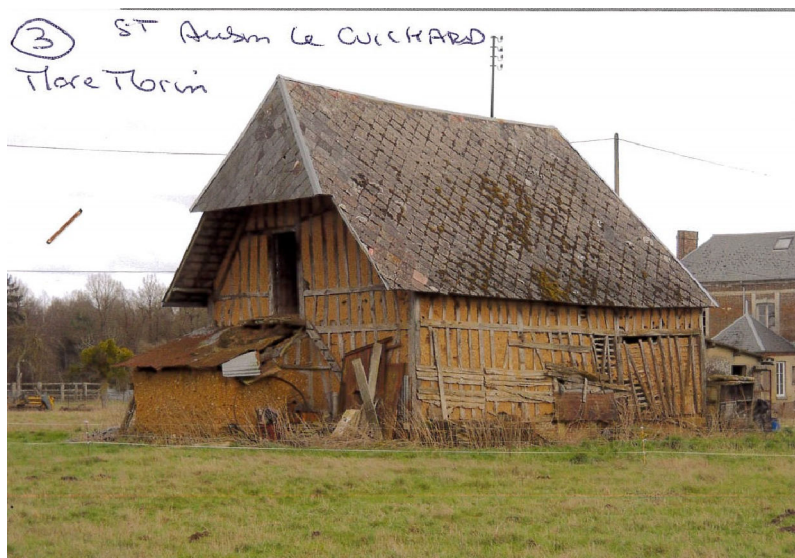 3 ST Aubin Le GUICHARD
Mare Morin